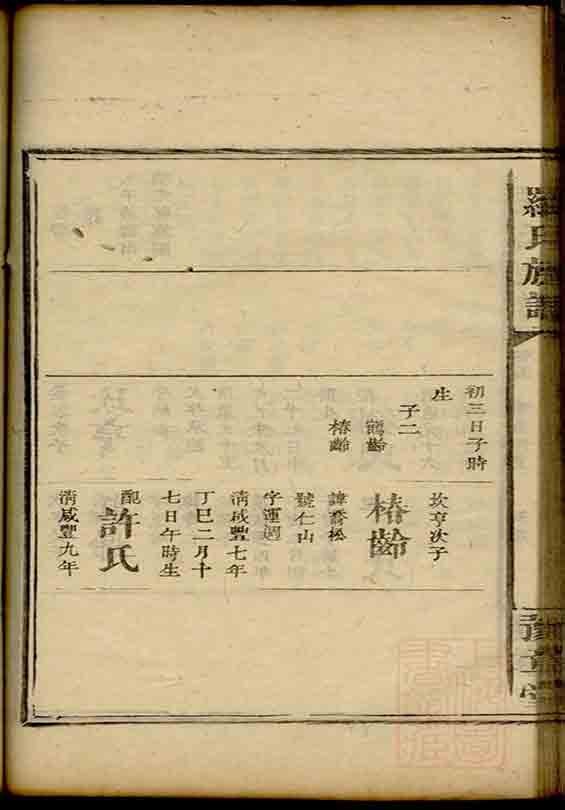 羅氏族譜
初三日子時
生
子二
鶴齡
椿齡
坎亨次子
椿齡
諱喬松
號仁山
字運迥
清咸豐七年
丁巳二月十
七日午時生
配許氏
清咸豐九年